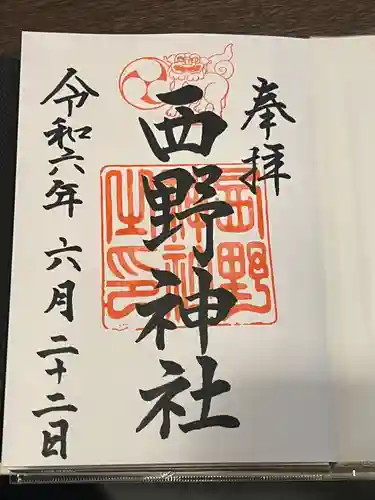 奉拝
西野神社
西野神社之印
令和六年 六月二十二日